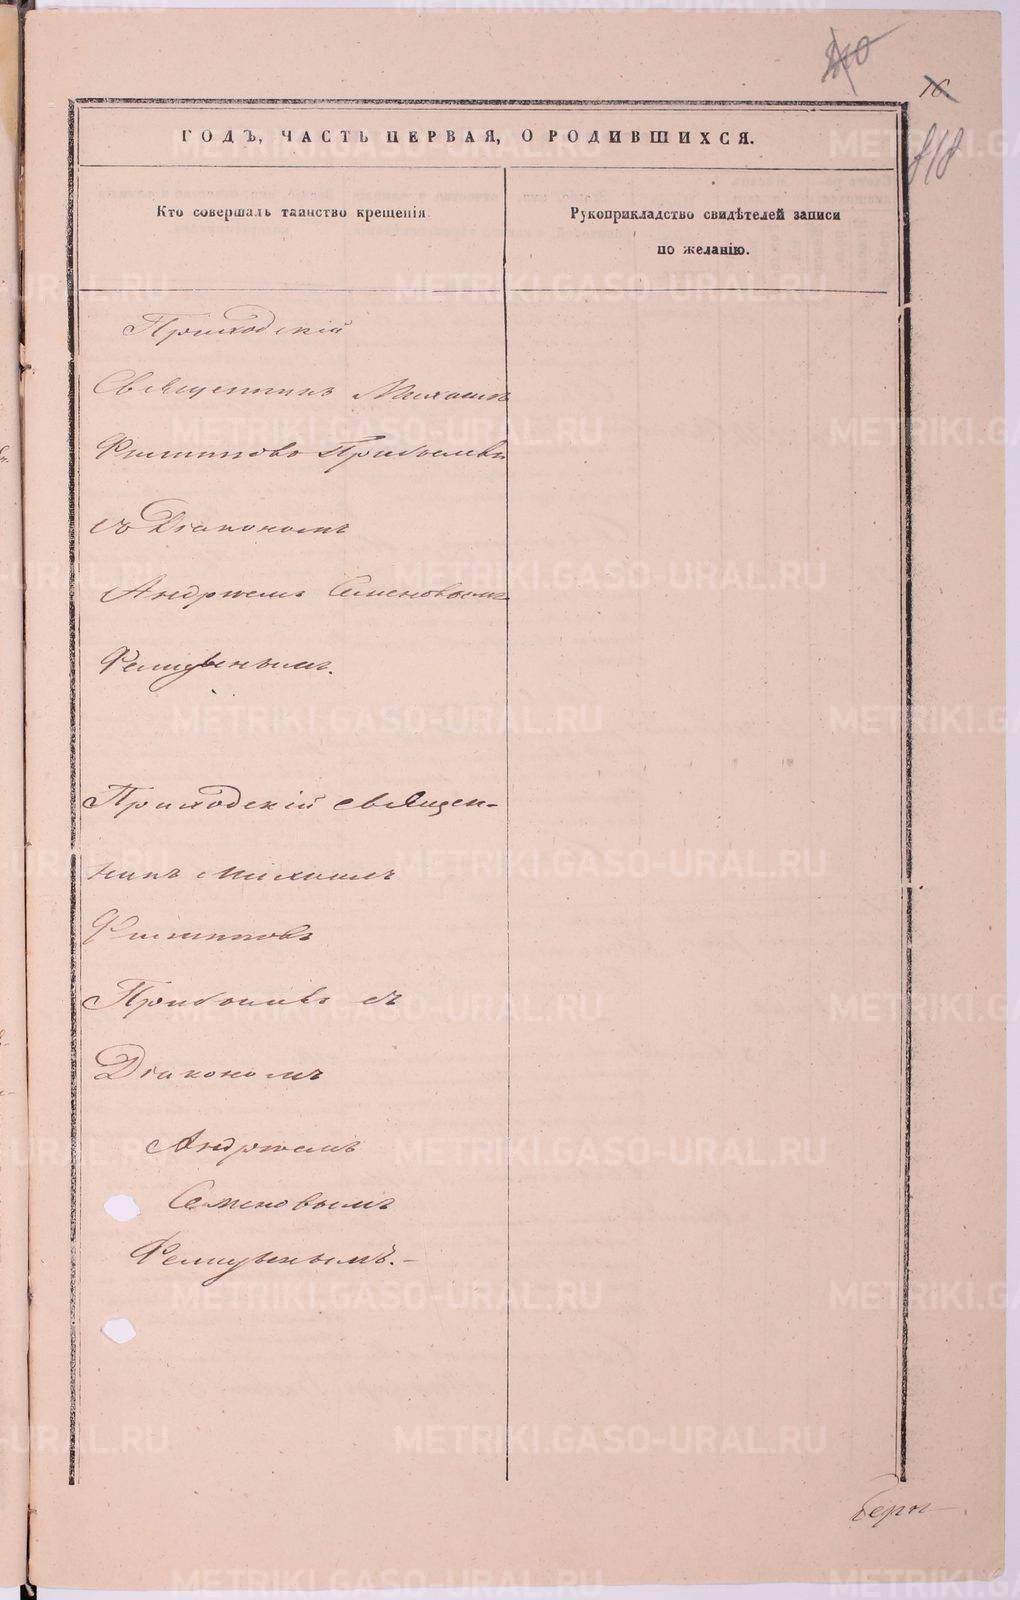 16
818
ГОДЪ, ЧАСТЬ ПЕРВАЯ, О РОДИВШИХСЯ.
Кто совершалъ таинство крещенія.
Рукоприкладство свидѣтелей записи
по желанію.
Приходскій
Священникъ Михаилъ
Филипповъ
съ Діакономъ
Андреемъ Семеновымъ
Приходскій священ-
никъ Михаилъ
Филипповъ
съ
Діакономъ
Андреемъ
Семеновымъ
METRIKI.GASO-URAL.RU